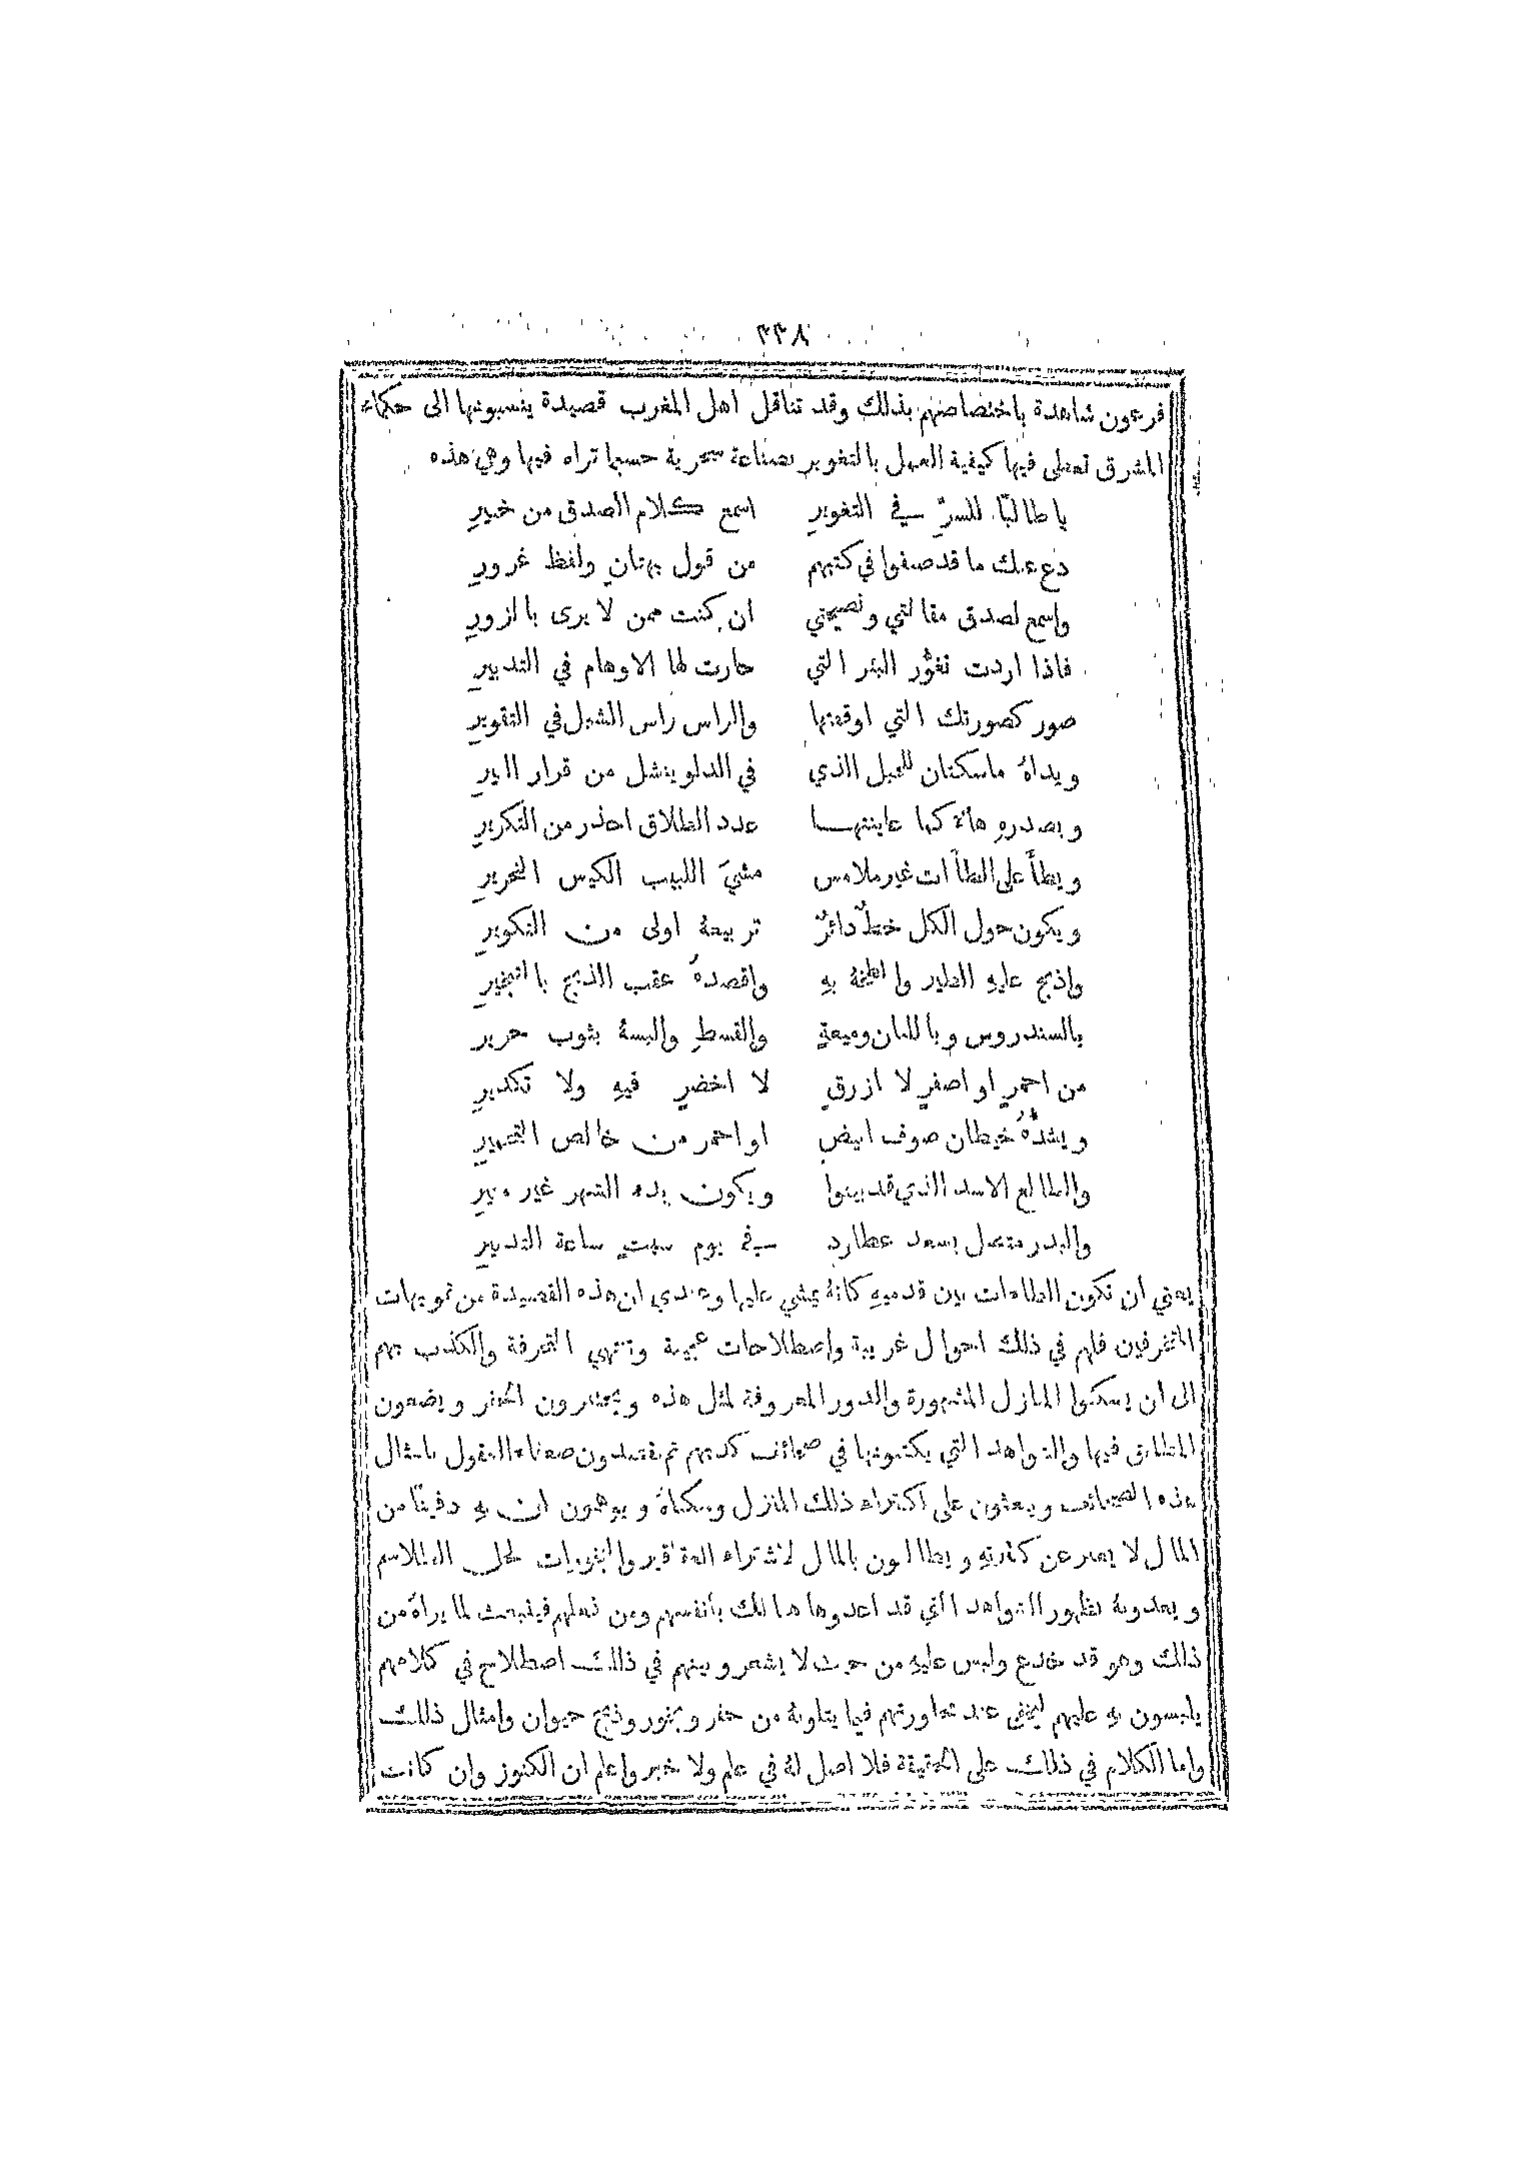 ٣٣٨
فرعون شاهدة باختصاصهم بذلك وقد تناقل اهل المغرب قصيدة ينسبونها الى حكماء
المشرق تعطى فيها كيفية العمل بالتغوير بصناعة سحرية حسبما تراه فيها وهي هذه
يا طالبًا للسرّ في التغويرِ اسمع كلام الصدق من خبيرِ
دع عنك ما قد صنفوا في كتبهم من قول بهتانٍ ولفظ غرورِ
واسمع لصدق مقالتي ونصيحتي ان كنت ممن لا يرى بالزورِ
فاذا اردت تغوُّر البئر التي حارت لها الاوهام في التدبيرِ
صور كصورتك التي اوقفتها والراس راس الشبل في التقويرِ
ويداهُ ماسكتان للحبل الذي في الدلو ينشل من قرار البيرِ
وبصدرهِ هاءٌ كما عاينتها عدد الطلاق احذر من التكريرِ
ويطأُ على الطاآت غير ملامس مشيَ اللبيب الكيس النحريرِ
ويكون حول الكل خطٌ دائرٌ تربيعهُ اولى من التكويرِ
واذبح عليهِ الطير والطخهُ بهِ واقصدهُ عقب الذبح بالتبخيرِ
بالسندروس وباللبان وميعةٍ والقسطِ والبسهُ بثوب حرير
من احمرٍ او اصفرٍ لا ازرقٍ لا اخضرٍ فيهِ ولا تكديرِ
ويشدُّهُ خيطان صوف ابيضٍ او احمر من خالص التحميرِ
والطالع الاسد الذي قد بينوا ويكون بدء الشهر غير منيرِ
والبدر متصل بسعد عطاردٍ في يوم سبتٍ ساعة التدبيرِ
يعني ان تكون الطاءات بين قدميهِ كانهُ يمشي عليها وعندي ان هذه القصيدة من تمويهات
المتخرفين فلهم في ذلك احوال غريبة واصطلاحات عجيبة وتنتهي التخرفة والكذب بهم
الى ان يسكنوا المنازل المشهورة والدور المعروفة لمثل هذه ويحتفرون الحفر ويضعون
المطابق فيها والشواهد التي يكتبونها في صحائف كذبهم ثم يقصدون ضعفاء العقول بامثال
هذه الصحائف ويعثون على اكتراء ذلك المنزل وسكناهُ ويوهمون ان بهِ دفينًا من
المال لا يعبر عن كثرتهِ ويطالبون بالمال لاشتراء العقاقير والبخورات لحل الطلاسم
ويعدونهُ بظهور الشواهد التي قد اعدوها هنالك بانفسهم ومن فعلهم فينبعث لما يراهُ من
ذلك وهو قد خدع ولبس عليهِ من حيث لا يشعر وبينهم في ذلك اصطلاح في كلامهم
يلبسون بهِ عليهم ليخفى عند محاورتهم فيما يتلونهُ من حفر وبخور وذبح حيوان وامثال ذلك
واما الكلام في ذلك على الحقيقة فلا اصل لهُ في علم ولا خبر واعلم ان الكنوز وان كانت